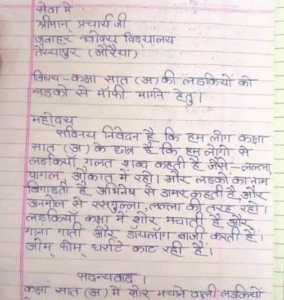 सेवा में
श्रीमान प्रचार्य जी
जवाहर नवोदय विद्यालय
तैय्यापुर (औरैया)
विषय - कक्षा सात (अ) की लडकियों को
लडको से मॉफी मागने हेतु।
महोदय
सविनय निवेदन है कि हम लोग कक्षा
सात (अ) के छात्र है कि हम लोगो से
लडकियाँ गलत शब्द कहती है जैसे - लल्ला,
पागल औकात में रहो। और लडको का नाम
बिगाडती है अभिनेष से डामर कहती है और
अनमोल से रसगुल्ला, लल्ला की तरह रहो।
लडकियाँ कक्षा में शोर मचाती है और
गाना गाती और डायलॉग बाजी करती है।
ओम् फोम् धर्राटे काट रही है।
सधन्यवाद।
कक्षा सात (अ) में शोर मचाने वाली लडकियों